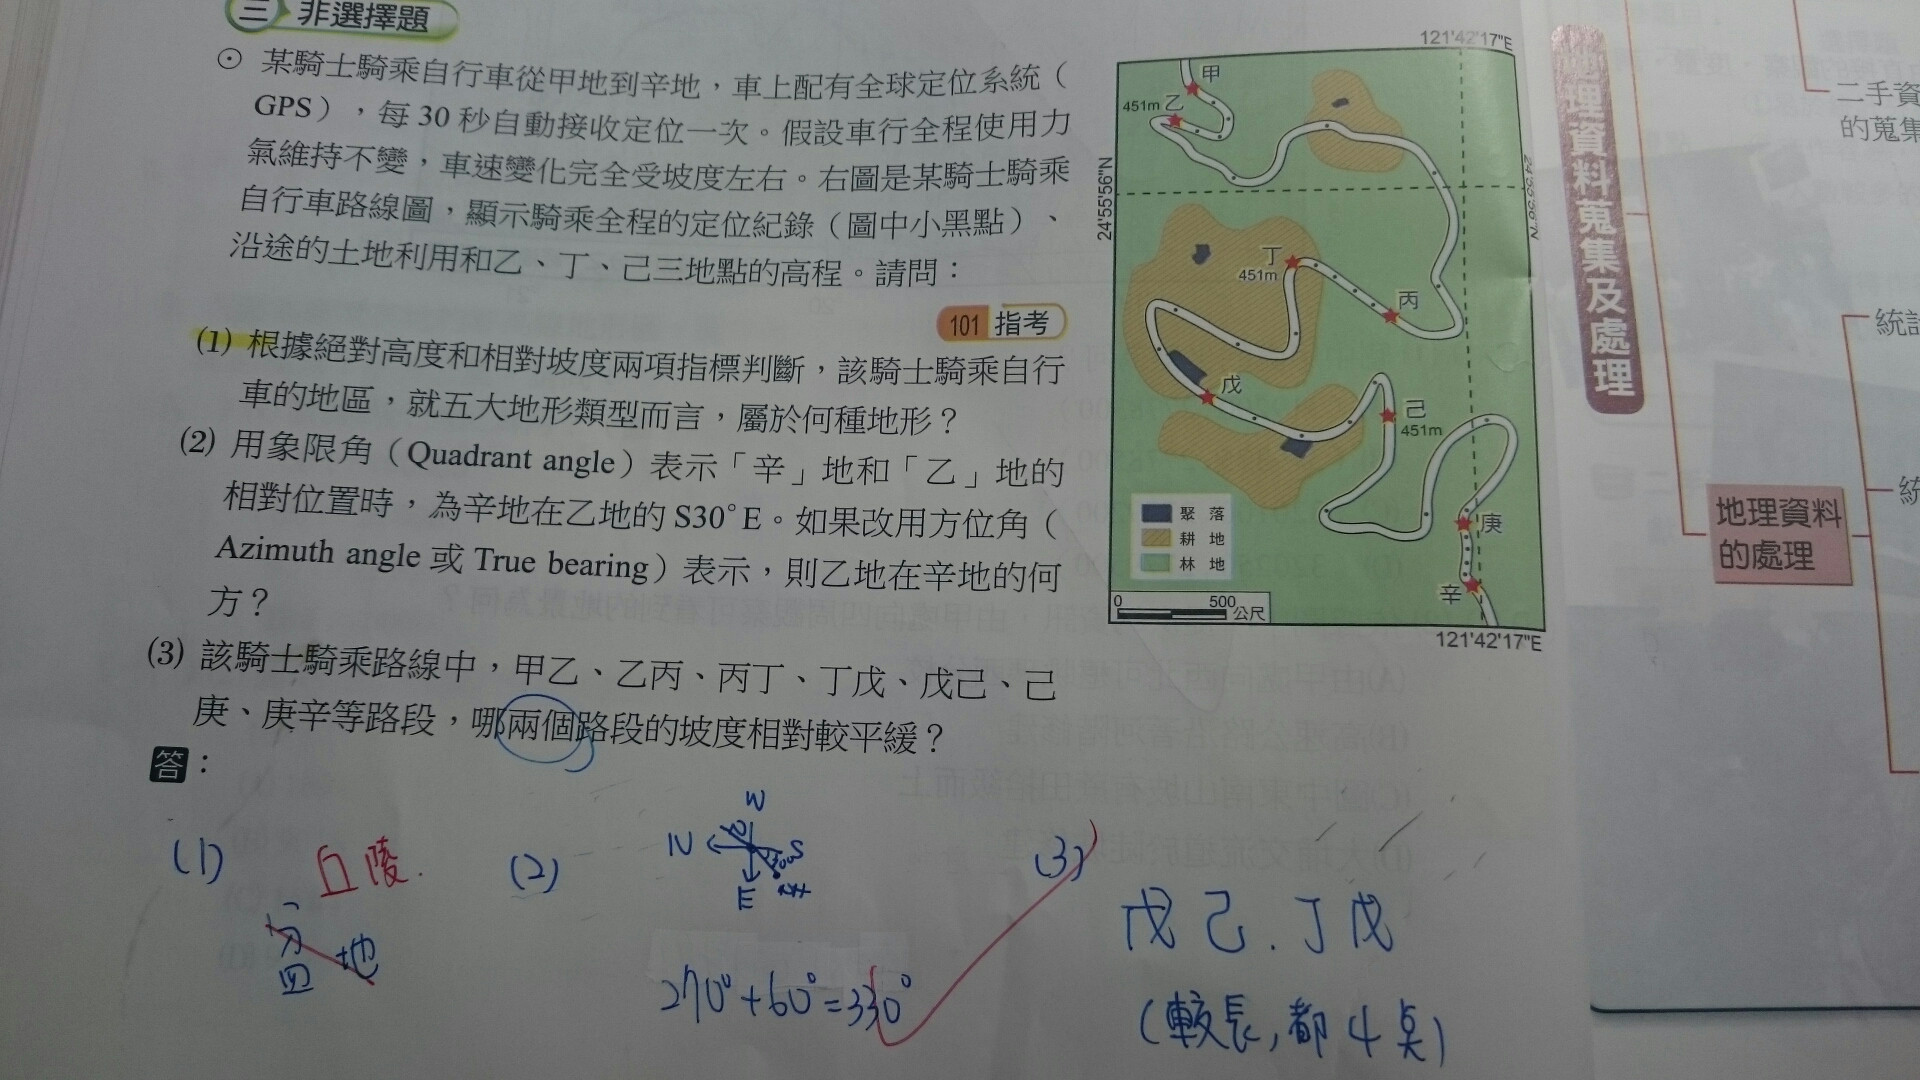 三 非選擇題
⊙ 某騎士騎乘自行車從甲地到辛地，車上配有全球定位系統（
GPS），每 30 秒自動接收定位一次。假設車行全程使用力
氣維持不變，車速變化完全受坡度左右。右圖是某騎士騎乘
自行車路線圖，顯示騎乘全程的定位紀錄（圖中小黑點）、
沿途的土地利用和乙、丁、己三地點的高程。請問：
101 指考
(1) 根據絕對高度和相對坡度兩項指標判斷，該騎士騎乘自行
車的地區，就五大地形類型而言，屬於何種地形？
(2) 用象限角（Quadrant angle）表示「辛」地和「乙」地的
相對位置時，為辛地在乙地的 S30°E。如果改用方位角（
Azimuth angle 或 True bearing）表示，則乙地在辛地的何
方？
(3) 該騎士騎乘路線中，甲乙、乙丙、丙丁、丁戊、戊己、己
庚、庚辛等路段，哪兩個路段的坡度相對較平緩？
答：
(1) 丘陵.
盆地
(2)
W
N S
E
270°+60°=330°
(3)
戊己.丁戊
(較長,都4點)
121°42'17"E
甲
451m 乙
24°55'56"N
丁
451m
丙
戊
己
451m
庚
辛
聚 落
耕 地
林 地
0 500
公尺
121°42'17"E
地理資料蒐集及處理
二手資
的蒐集
統計
地理資料
的處理
統